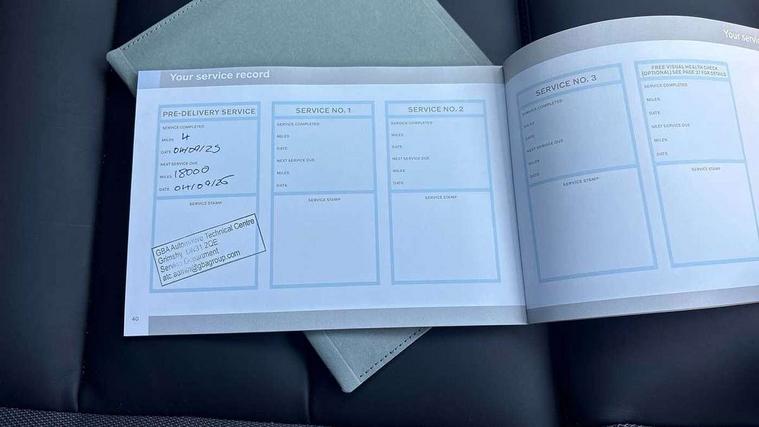 Your service record
PRE-DELIVERY SERVICE
SERVICE COMPLETED
MILES 4
DATE 04/09/25
NEXT SERVICE DUE
MILES 18000
DATE 04/09/26
SERVICE STAMP
GBA Automotive Technical Centre
Grimsby DN31 2QE
Service Department
atc.admin@gbagroup.com
SERVICE NO. 1
SERVICE COMPLETED
MILES
DATE
NEXT SERVICE DUE
MILES
DATE
SERVICE STAMP
SERVICE NO. 2
SERVICE COMPLETED
MILES
DATE
NEXT SERVICE DUE
MILES
DATE
SERVICE STAMP
40
Your
SERVICE NO. 3
SERVICE COMPLETED
MILES
DATE
NEXT SERVICE DUE
MILES
DATE
SERVICE STAMP
FREE VISUAL HEALTH CHECK
(OPTIONAL) SEE PAGE 37 FOR DETAILS
SERVICE COMPLETED
MILES
DATE
NEXT SERVICE DUE
MILES
DATE
SERVICE STAMP